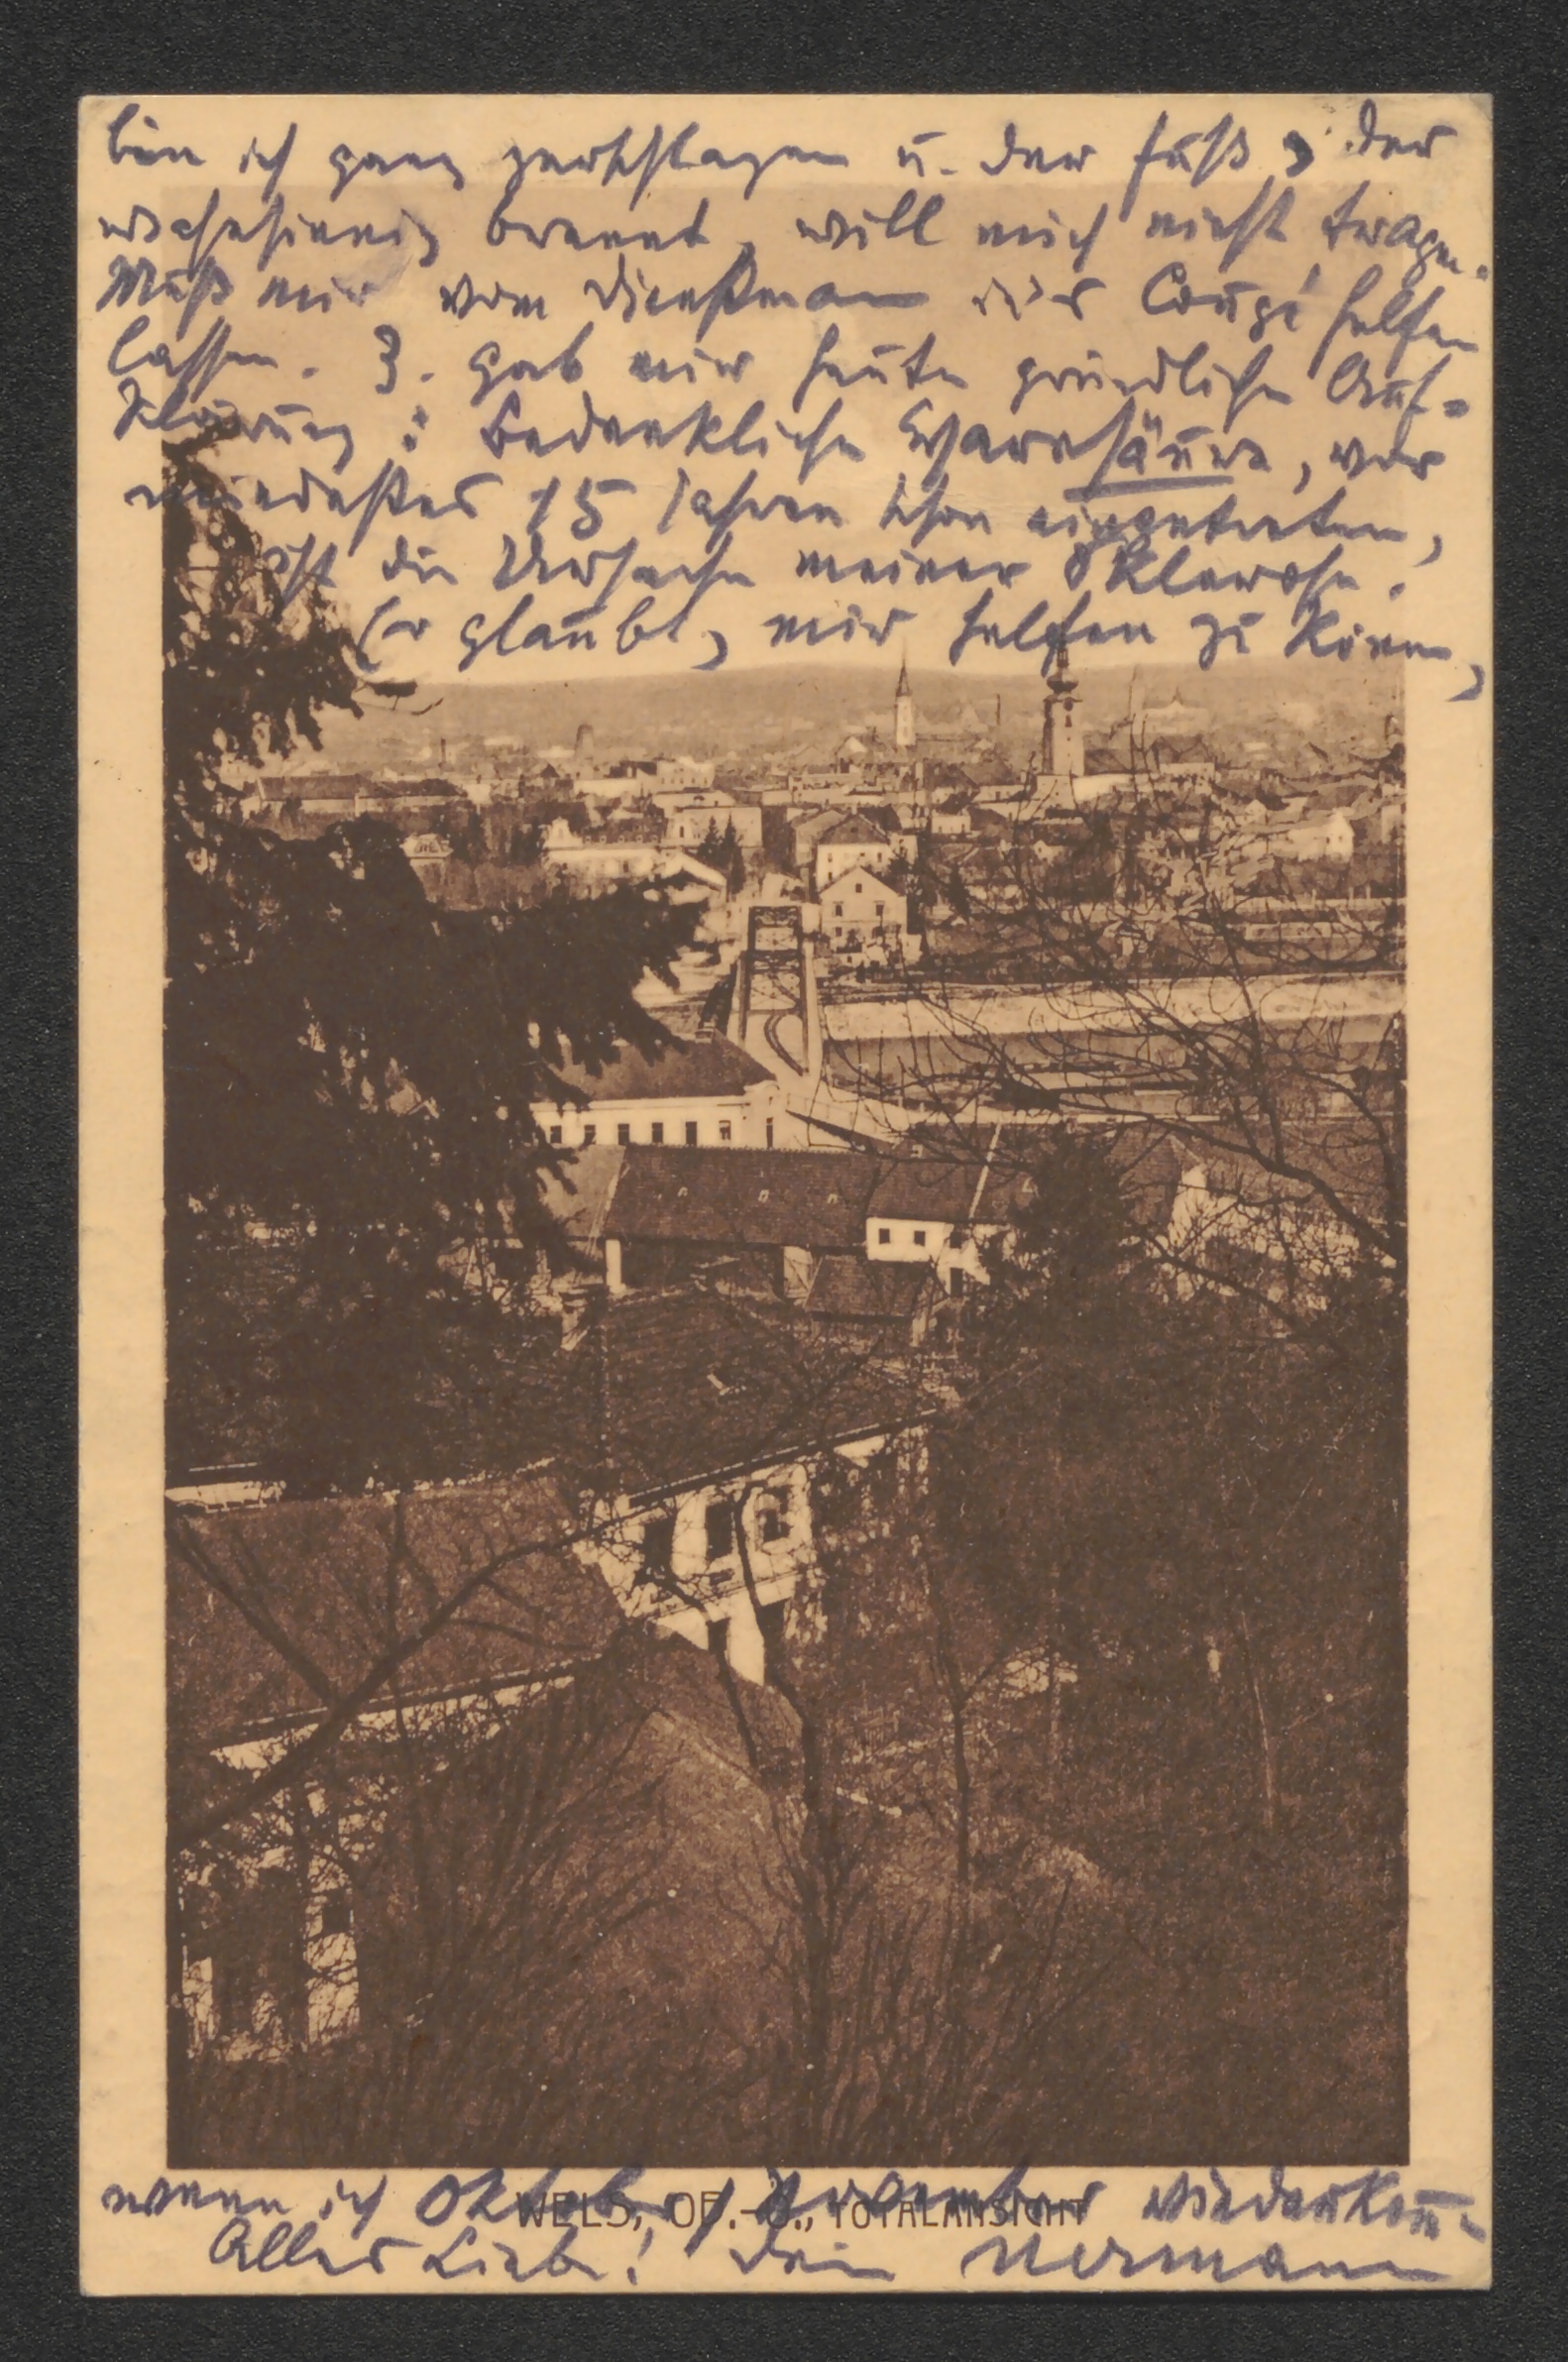 bin ich ganz zerschlagen u. der Fuß, der
wahnsinnig brennt, will mich nicht tragen.
Muß mir vom Dienstmann ins Coupé helfen
lassen. Z. gab mir heute gründliche Auf-
klärung: Bedenkliche Harnsäure, vor
mindestens 15 Jahren schon eingetreten,
ist die Ursache meiner Sklerose.
Er glaubt, mir helfen zu können,
WELS, OB.-Ö., TOTALANSICHT
wenn ich Oktob. / November wiederkom̄.
Alles Liebe! Dein Hermann